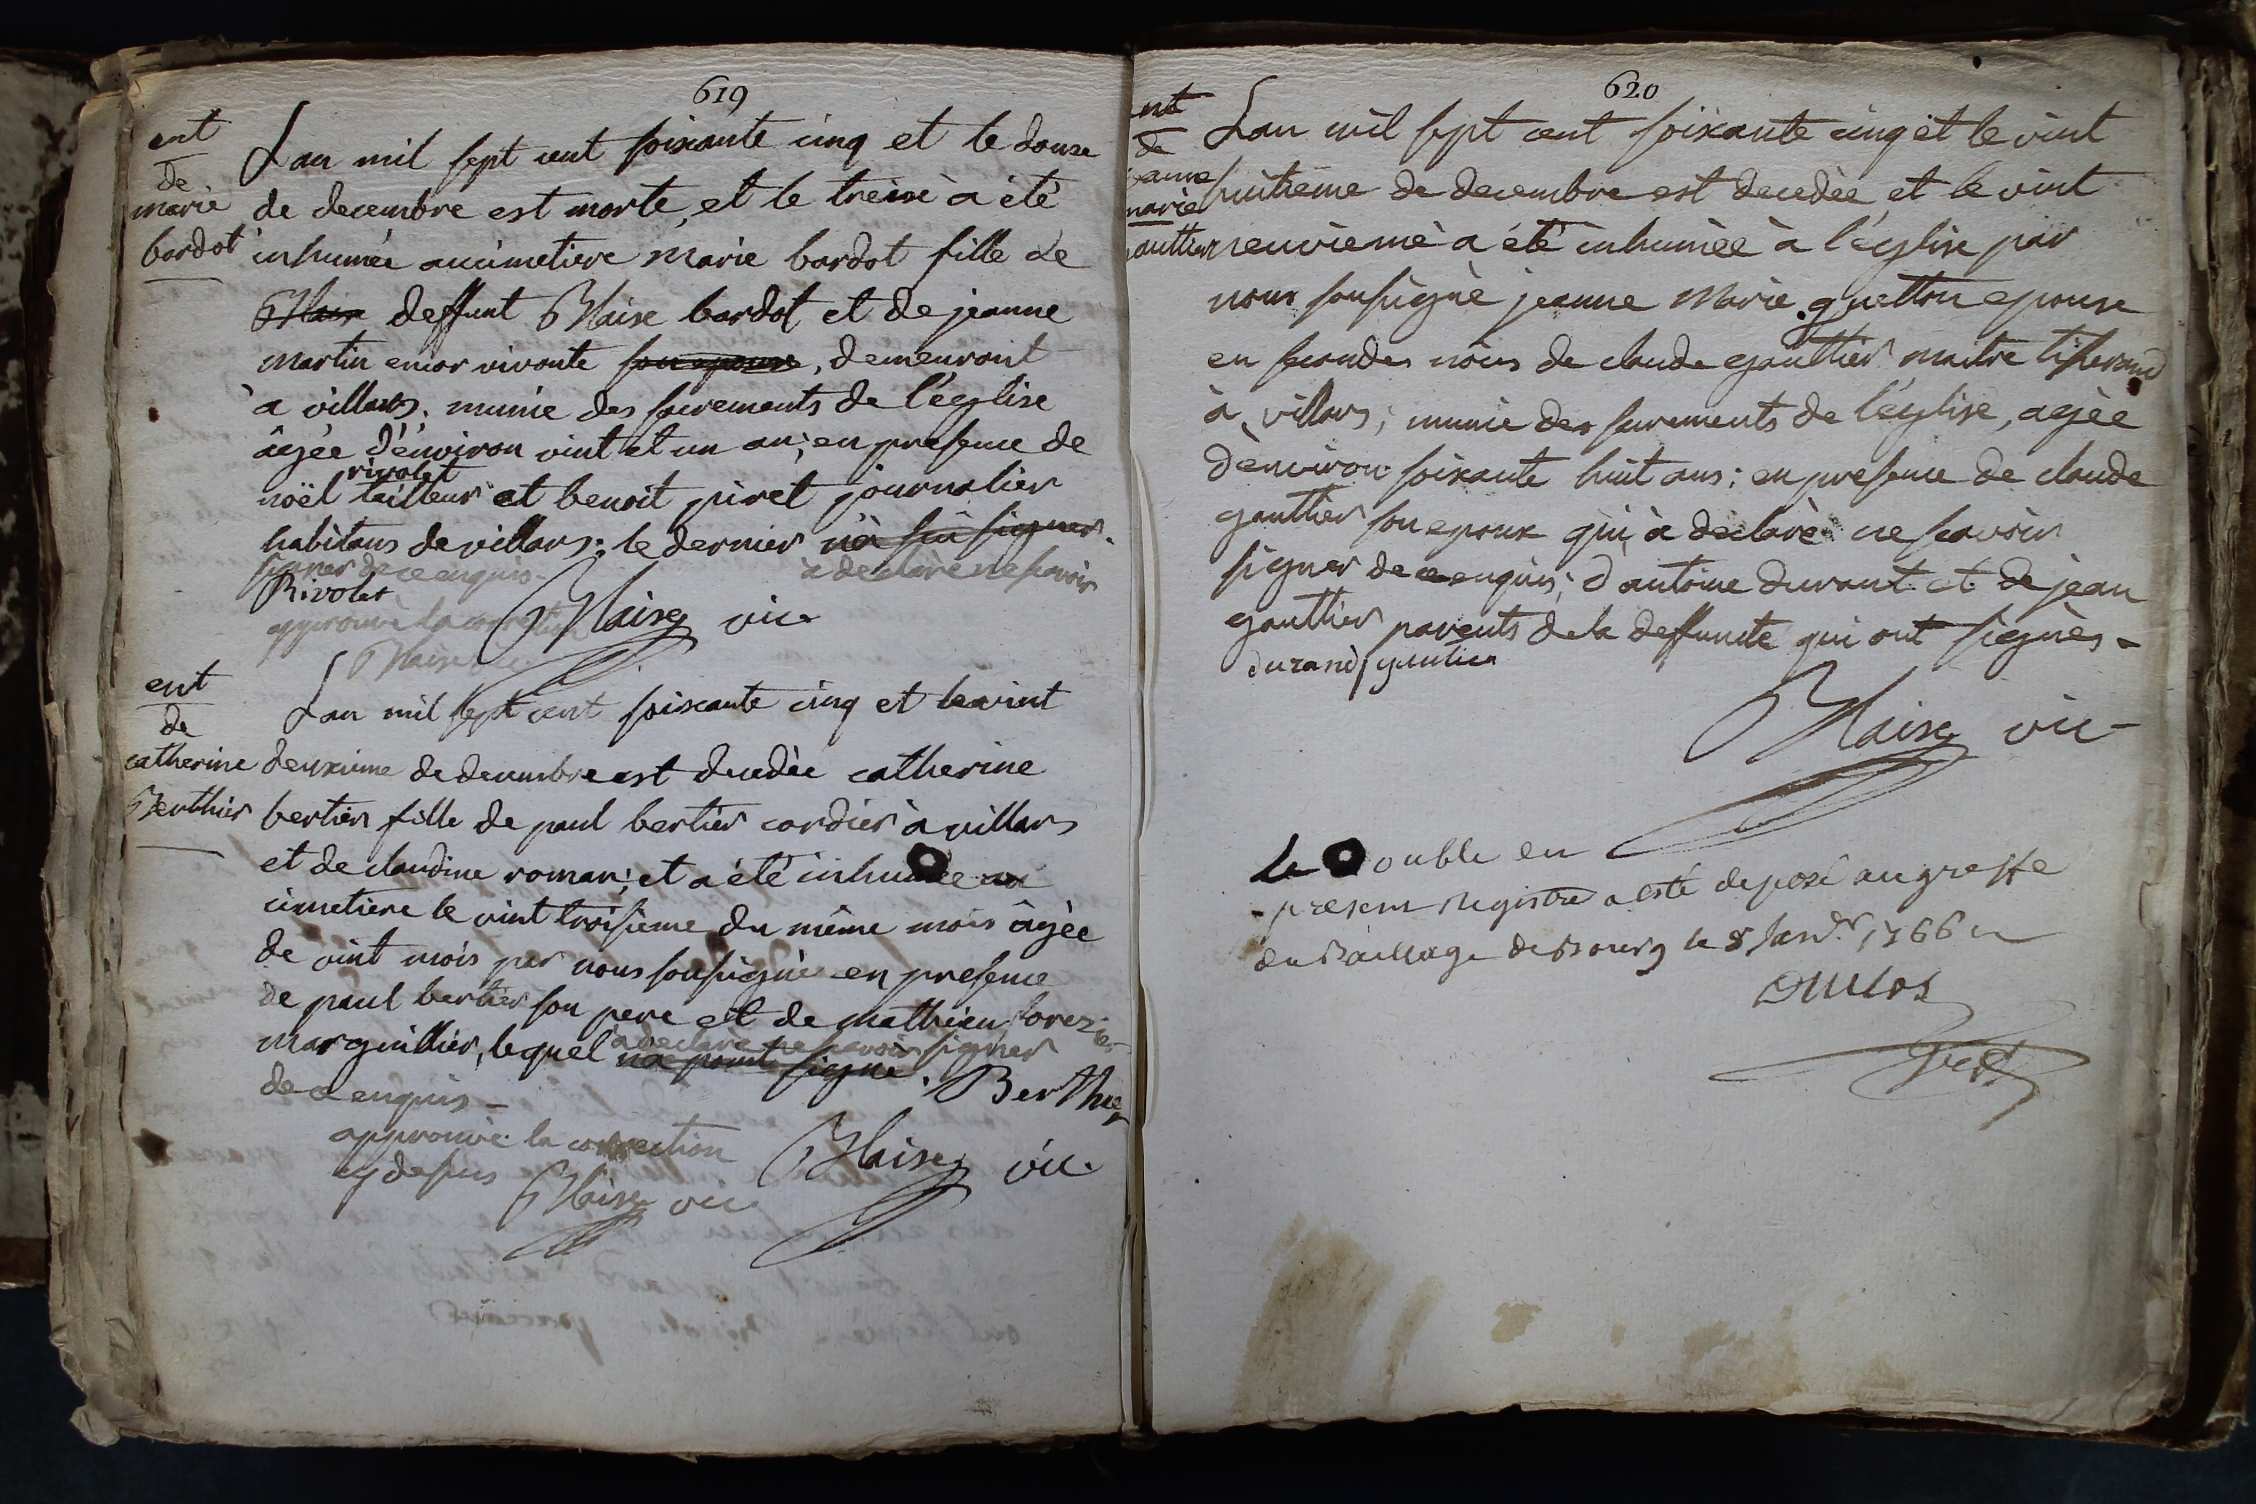 619
ent
de
marie
bardot
Lan mil sept cent soixante cinq et le douze
de decembre est morte, et le treise a été
inhumée au cimetiere marie bardot fille de
Blaise deffunt Blaise bardot et de jeanne
martin encor vivante son epouse, demeurant
a villars. munie des sacrements de l'église
âgée d'environ vint et un an; en presence de
rivolet
noël tailleur et benoit piret journalier
habitans de villars; le dernier n'a sû signer.
a declaré ne savoir
signer de ce enquis.
Rivolet
approuvé la correction
Blaise vic.
Blaise vic
ent
de
catherine
Berthier
Lan mil sept cent soixante cinq et le vint
deuxieme de decembre est decedée catherine
bertier fille de paul bertier cordier à villars
et de claudine roman; et a été inhumée au
cimetiere le vint troisieme du même mois âgée
de vint mois par nous soussigné en presence
de paul bertier son pere et de mathieu forezier
marguillier, lequel n'a point signé.
a declaré ne savoir signer
de ce enquis -
Berthier
approuvé la correction
cy dessus
Blaise vic
Blaise vic.
620
ent
de
jeanne
marie
gauttier
Lan mil sept cent soixante cinq et le vint
huitieme de decembre est decedée, et le vint
neuvieme a été inhumée à l'église par
nous soussigné jeanne Marie guetton epouse
en secondes nôces de claude gauttier maitre tisserand
à villars; munie des sacrements de l'église, agée
d'environ soixante huit ans; en presence de claude
gauttier son epoux qui a declaré ne savoir
signer de ce enquis; d'antoine durant et de jean
gauttier parents de la deffuncte qui ont signés -
durand gautier
Blaise vic -
Le Double du
present registre a esté deposé au greffe
du Bailliage de Bourg le 8 Janv.r 1766
Duclos
Greff.